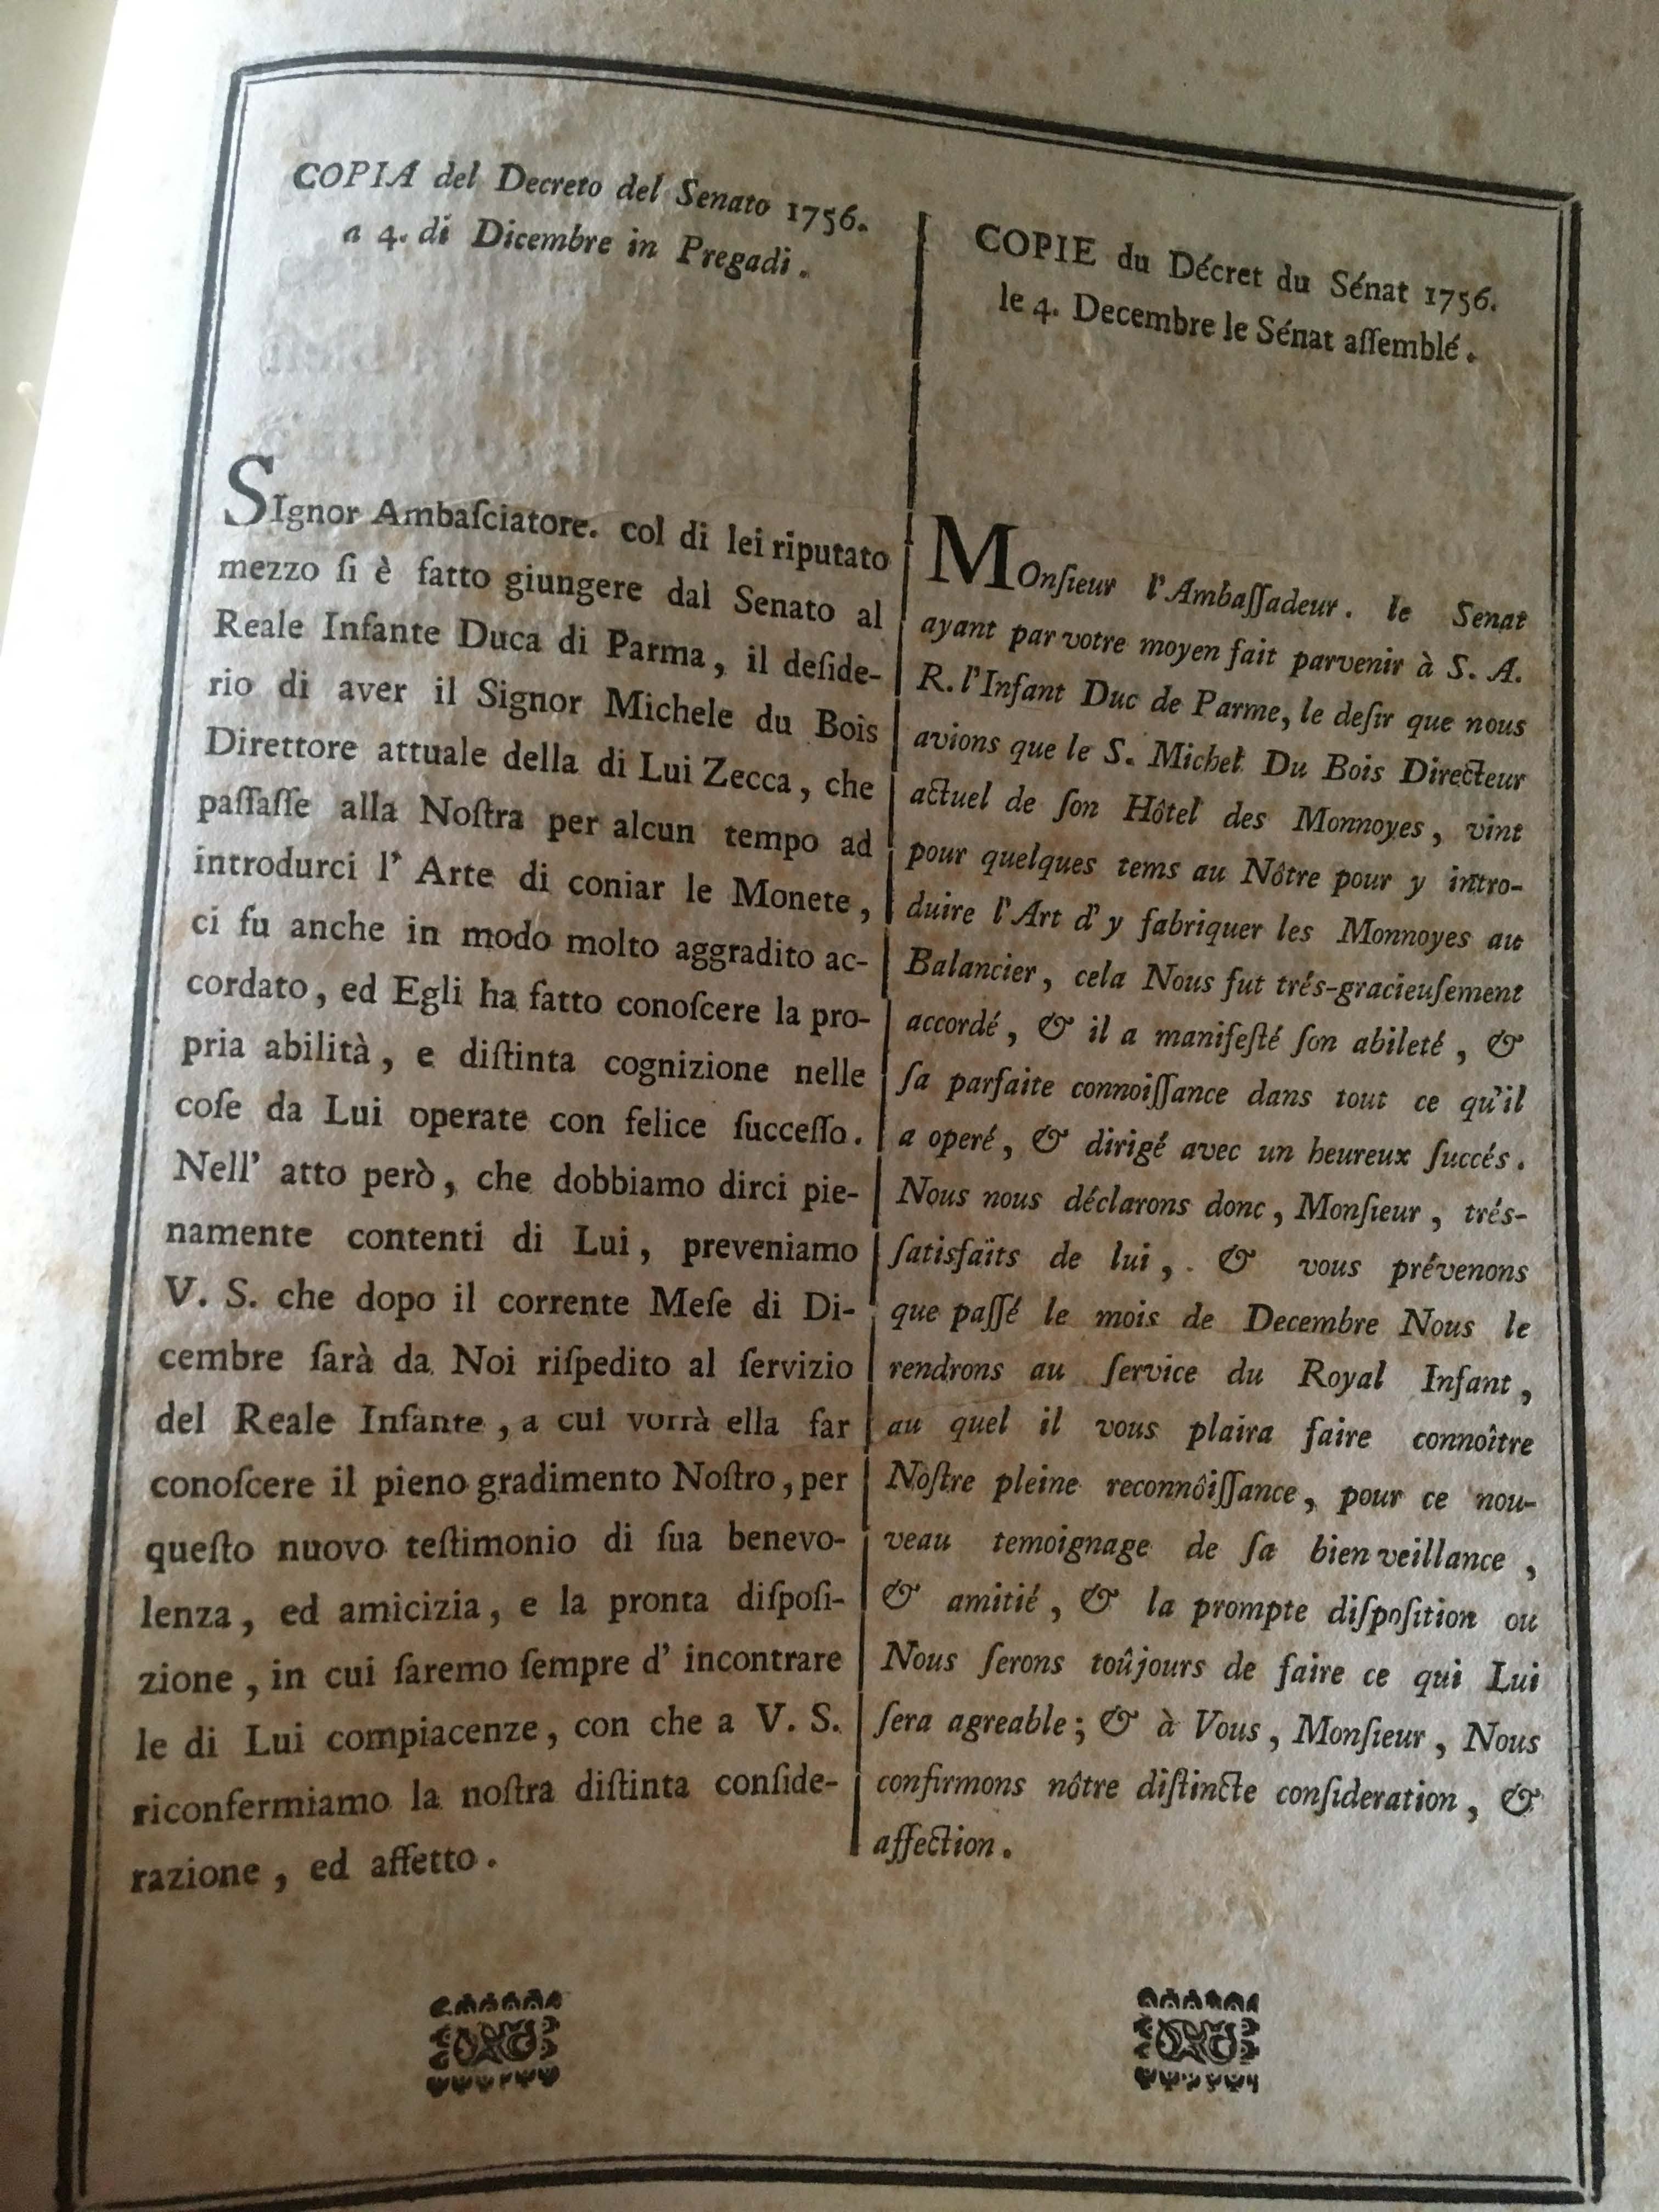 COPIA del Decreto del Senato 1756.
a 4. di Dicembre in Pregadi.
SIgnor Ambaſciatore. col di lei riputato
mezzo ſi è fatto giungere dal Senato al
Reale Infante Duca di Parma, il deſide-
rio di aver il Signor Michele du Bois
Direttore attuale della di Lui Zecca, che
paſſaſſe alla Noſtra per alcun tempo ad
introdurci l' Arte di coniar le Monete,
ci fu anche in modo molto aggradito ac-
cordato, ed Egli ha fatto conoſcere la pro-
pria abilità, e diſtinta cognizione nelle
coſe da Lui operate con felice ſucceſſo.
Nell' atto però, che dobbiamo dirci pie-
namente contenti di Lui, preveniamo
V. S. che dopo il corrente Meſe di Di-
cembre ſarà da Noi riſpedito al ſervizio
del Reale Infante, a cui vorrà ella far
conoſcere il pieno gradimento Noſtro, per
queſto nuovo teſtimonio di ſua benevo-
lenza, ed amicizia, e la pronta diſpoſi-
zione, in cui ſaremo ſempre d' incontrare
le di Lui compiacenze, con che a V. S.
riconfermiamo la noſtra diſtinta conſide-
razione, ed affetto.
COPIE du Décret du Sénat 1756.
le 4. Decembre le Sénat aſſemblé.
MOnſieur l'Ambaſſadeur. le Senat
ayant par votre moyen fait parvenir à S. A.
R. l'Infant Duc de Parme, le deſir que nous
avions que le S. Michel Du Bois Directeur
actuel de ſon Hôtel des Monnoyes, vint
pour quelques tems au Nôtre pour y intro-
duire l'Art d'y fabriquer les Monnoyes au
Balancier, cela Nous fut trés-gracieuſement
accordé, & il a manifeſté ſon abileté, &
ſa parfaite connoiſſance dans tout ce qu'il
a operé, & dirigé avec un heureux ſuccés.
Nous nous déclarons donc, Monſieur, trés-
ſatisfaits de lui, & vous prévenons
que paſſé le mois de Decembre Nous le
rendrons au ſervice du Royal Infant,
au quel il vous plaira faire connoître
Nôſtre pleine reconnôiſſance, pour ce nou-
veau temoignage de ſa bien veillance,
& amitié, & la prompte diſpoſition ou
Nous ſerons toûjours de faire ce qui Lui
ſera agreable; & à Vous, Monſieur, Nous
confirmons nôtre diſtincte conſideration, &
affection.